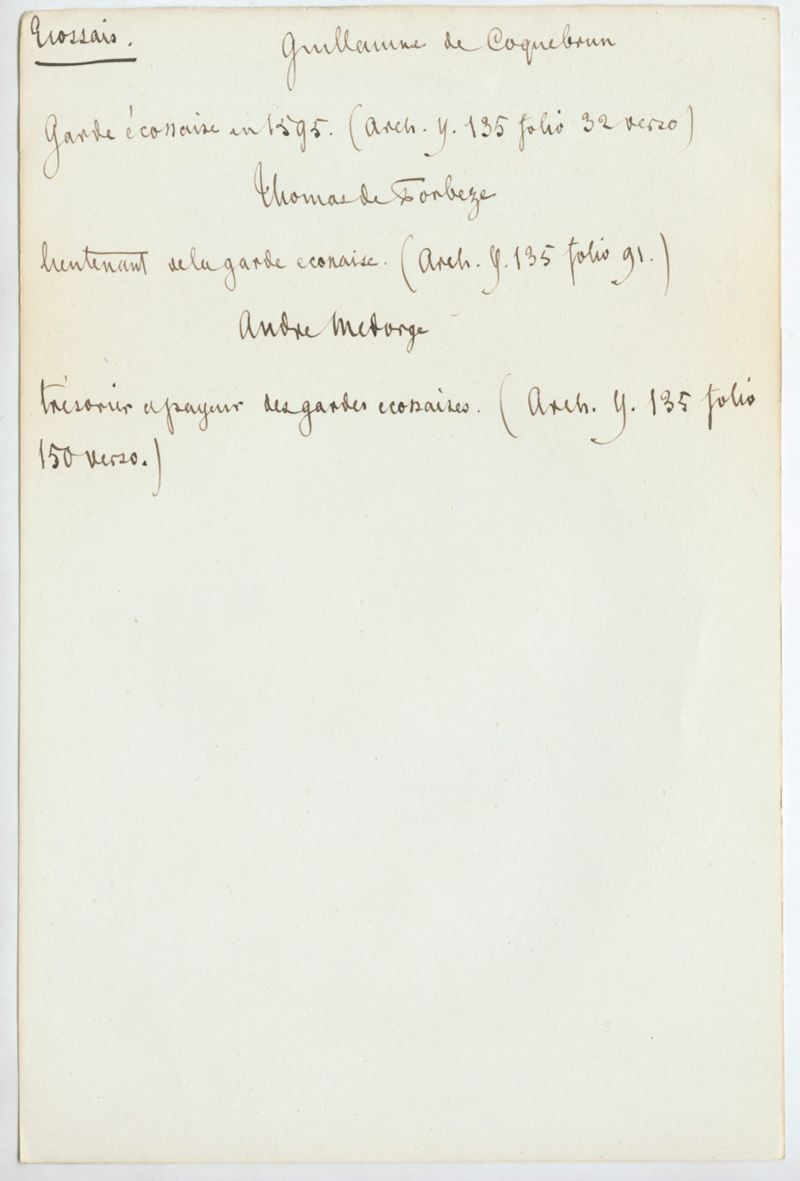 Ecossais. Guillaume de Coquebrun
Garde écossaise en 1595. (Arch. Y. 135 folio 32 verso)
Thomas de Forbeze
lieutenant de la garde ecossaise. (Arch. Y. 135 folio 91.)
André Medorge
trésorier et payeur des gardes ecossaises. (Arch. Y. 135 folio
150 verso.)